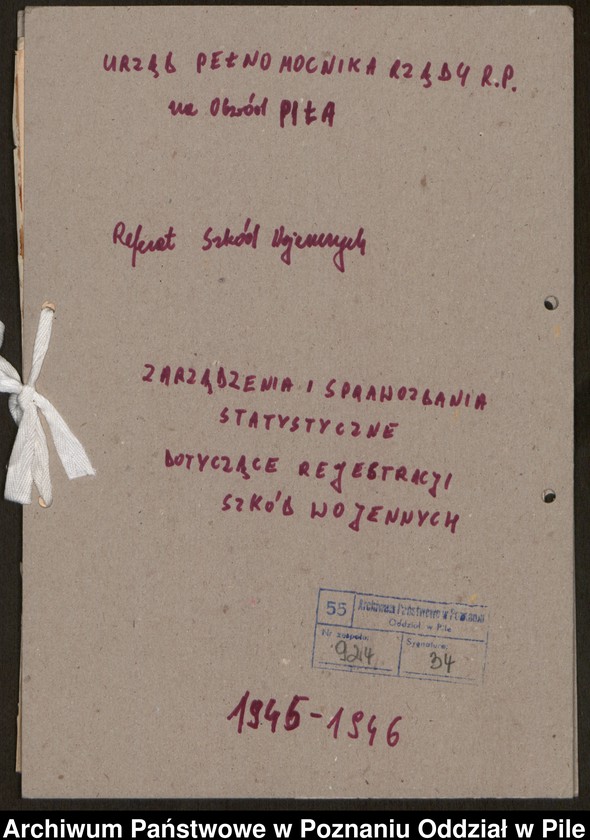 URZĄD PEŁNOMOCNIKA RZĄDU R.P.
na Obwód PIŁA
Referat Szkód Wojennych
ZARZĄDZENIA I SPRAWOZDANIA
STATYSTYCZNE
DOTYCZĄCE REJESTRACJI
SZKÓD WOJENNYCH
55 Archiwum Państwowe w Poznaniu
Oddział w Pile
Nr zespołu: Sygnatura:
924 34
1945-1946
Archiwum Państwowe w Poznaniu Oddział w Pile